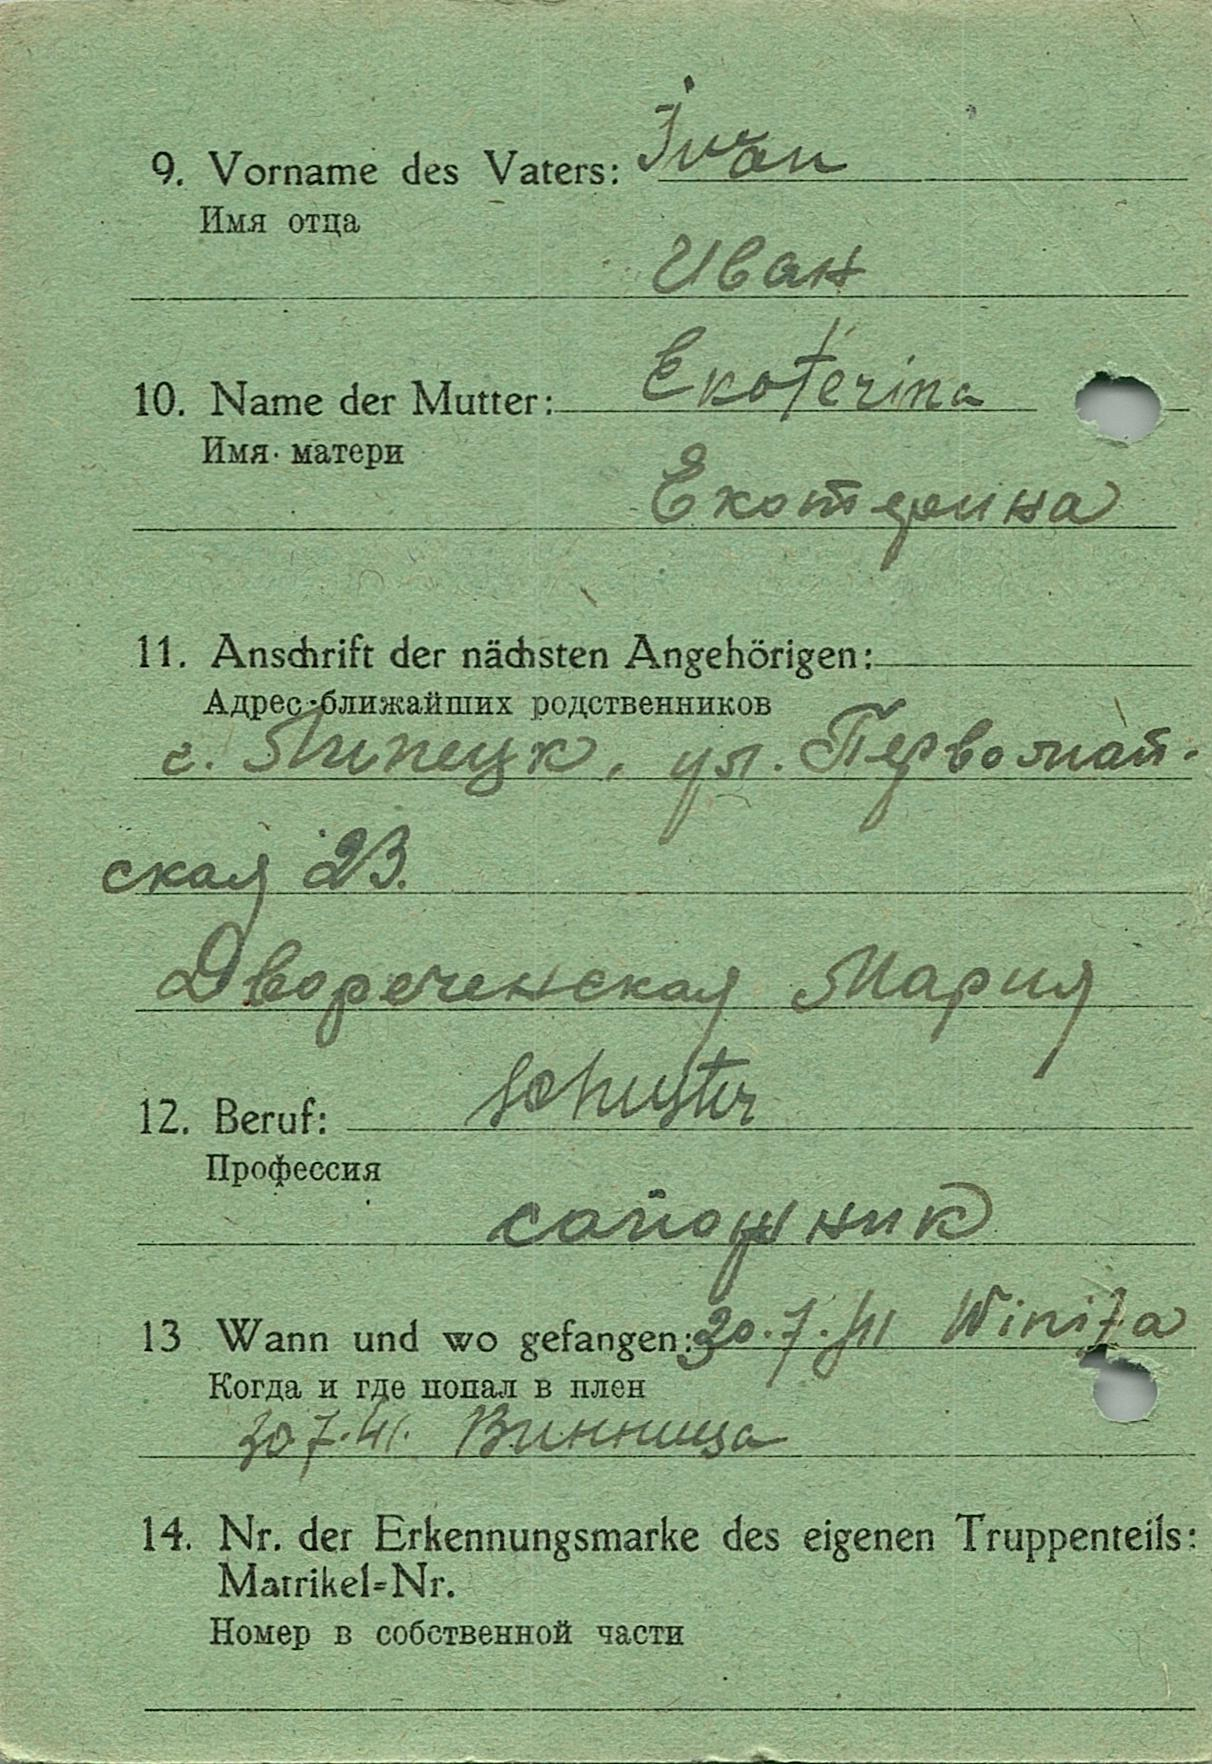 9. Vorname des Vaters: Ivan
Имя отца
Иван
10. Name der Mutter: Ekaterina
Имя матери
Екотерина
11. Anschrift der nächsten Angehörigen:
Адрес ближайших родственников
г. Липецк, ул. Первомай-
ская 23.
Двореченская Мария
12. Beruf: Schuster
Профессия
сапожник
13 Wann und wo gefangen: 30.7.41 Winiza
Когда и где попал в плен
30 7.41. Винница
14. Nr. der Erkennungsmarke des eigenen Truppenteils:
Matrikel=Nr.
Номер в собственной части